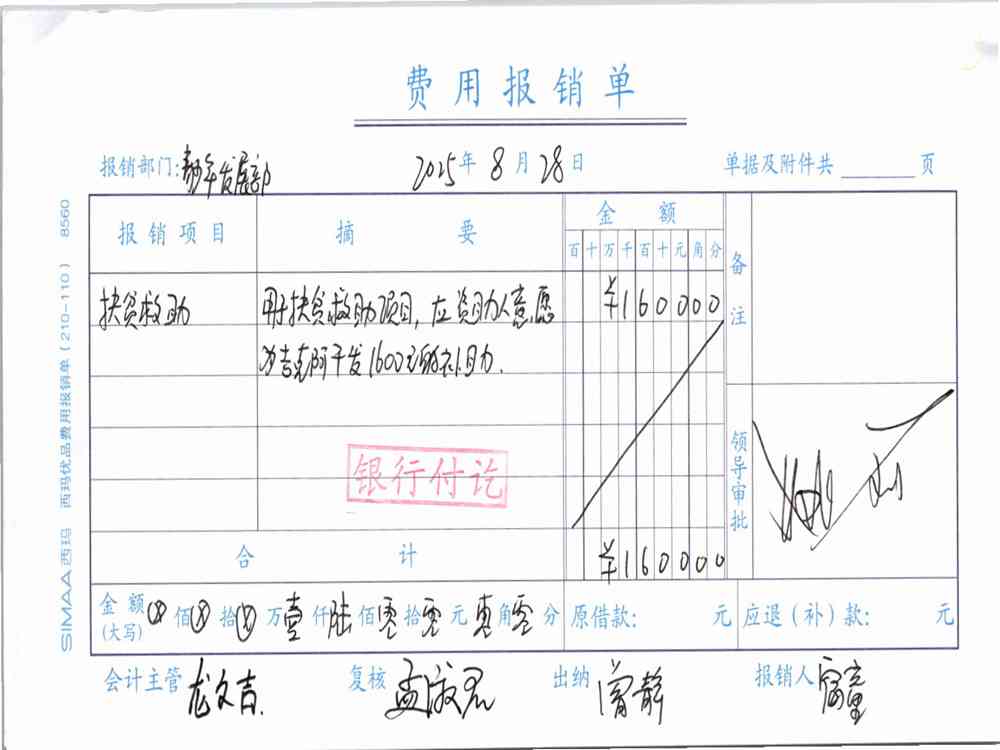 费用报销单
报销部门: 年发展部 2025年 8月 28日 单据及附件共 页
报销项目 摘 要 金 额 备注
百十万千百十元角分
扶贫救助 用于扶贫救助项目,应资助人意愿 ¥160000
为吉克阿干发1600元的补助.
银行付讫
领导审批
合 计 ¥160000
金额(大写) ⊗佰⊗拾⊗万壹仟陆佰零拾零元零角零分 原借款: 元 应退(补)款: 元
会计主管 龙文吉. 复核 孟淑君 出纳 曾静 报销人
SIMAA西玛 西玛优品费用报销单(210-110) 8560